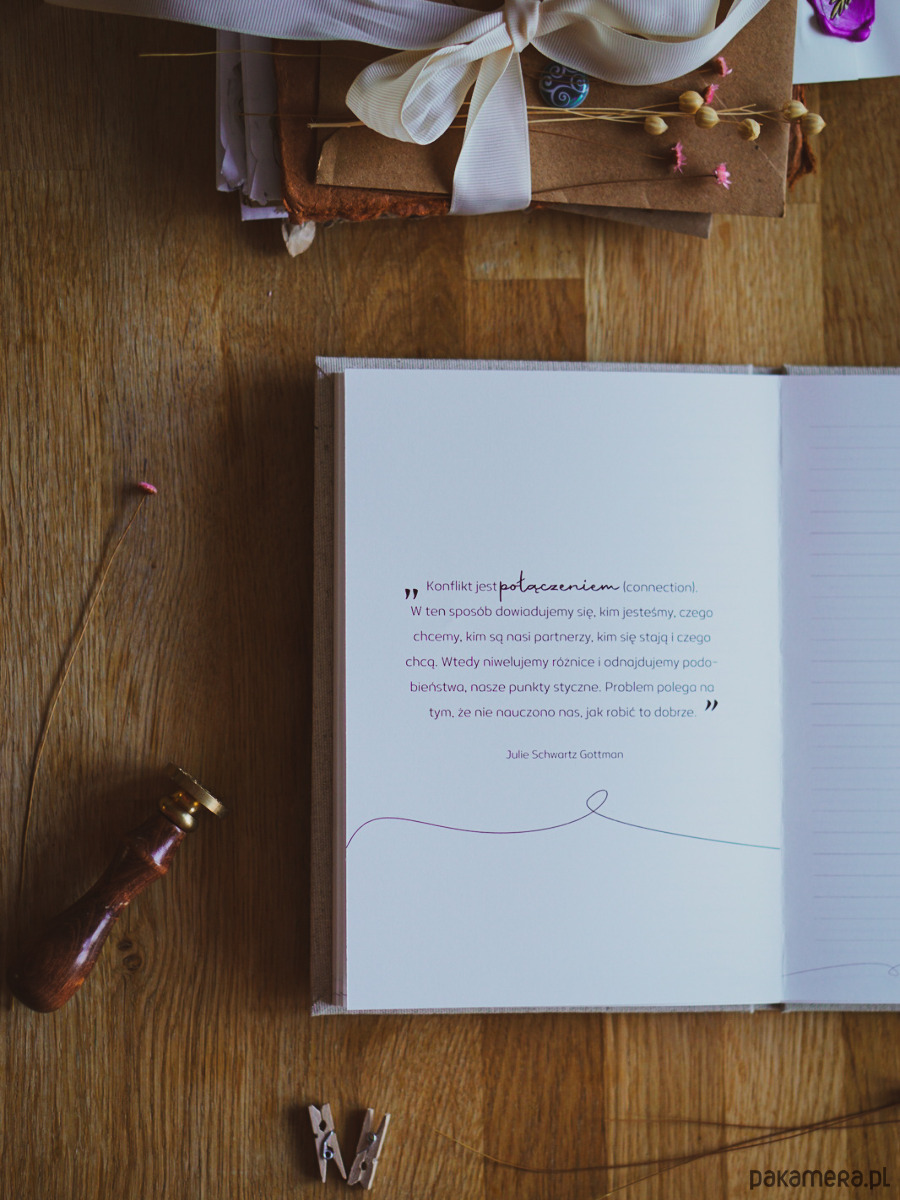 „ Konflikt jest połączeniem (connection).
W ten sposób dowiadujemy się, kim jesteśmy, czego
chcemy, kim są nasi partnerzy, kim się stają i czego
chcą. Wtedy niwelujemy różnice i odnajdujemy podo-
bieństwa, nasze punkty styczne. Problem polega na
tym, że nie nauczono nas, jak robić to dobrze. ”
Julie Schwartz Gottman
pakamera.pl